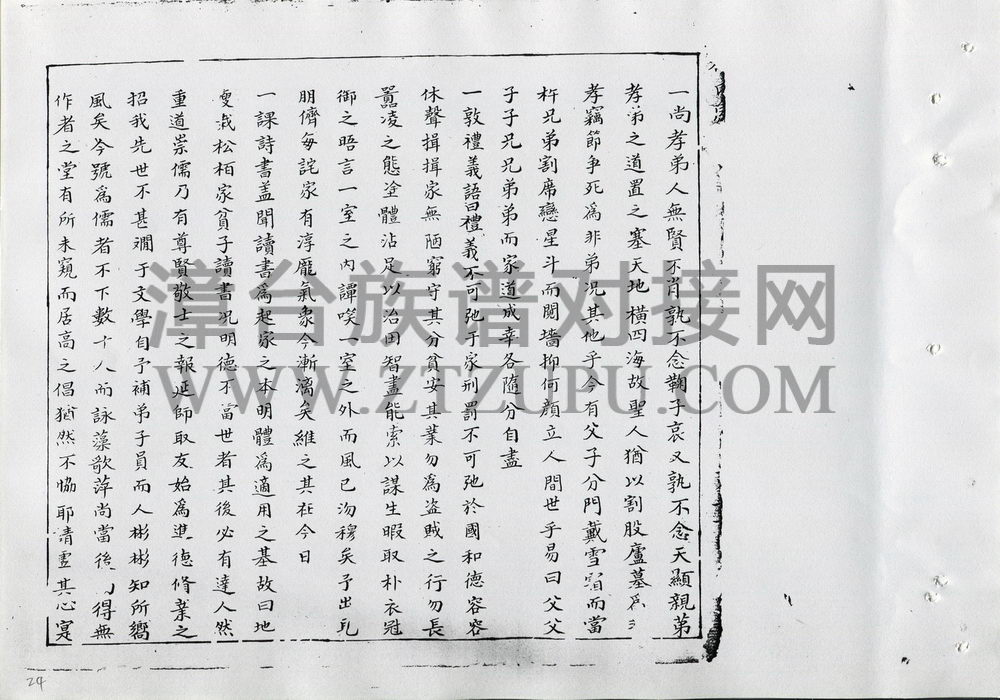 一尚孝弟人無賢不肖孰不念鞠子哀又孰不念天顯親弟
孝弟之道置之塞天地橫四海故聖人猶以割股廬墓為
孝竊節爭死為非弟况其他乎今有父子分門戴雪宿而當
杵兄弟割席戀星斗而鬩墻抑何顔立人間世乎易曰父父
子子兄兄弟弟而家道成幸各隨分自盡
一敦禮義語曰禮義不可弛于家刑罰不可弛於國和德容容
休聲揖揖家無陋窮守其分貧安其業勿為盜賊之行勿長
嚚凌之態塗體沾足以治田智盡能索以謀生暇取朴衣冠
御之晤言一室之内譁唉一室之外而風已沕穆矣予出乳
朋儕每詫家有淳龐氣象今漸漓矣維之其在今日
一課詩書盖聞讀書為起家之本明體為適用之基故曰地
叓栽松栢家貧子讀書况明德不當世者其後必有達人然
重道崇儒乃有尊賢敬士之報延師取友始為進德脩業之
招我先世不甚嫺于文學自予補弟子員而人彬彬知所嚮
風矣今號為儒者不下數十人而詠藻歌萍尚當後得無
作者之堂有所未窺而居高之倡猶然不恊耶請亶其心寔
漳台族谱对接网
WWW.ZTZUPU.COM
24